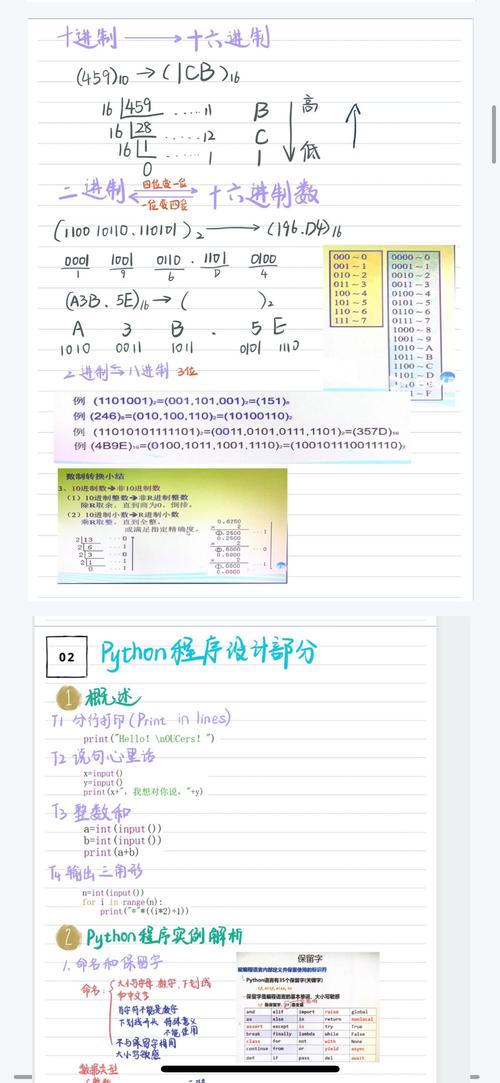 十进制 → 十六进制
(459)₁₀ → (1CB)₁₆
16 459 ..... 11 B 高
16 28 ..... 12 C
16 1 ..... 1 1 低
0
二进制 四位变一位 十六进制数
一位变四位
(1100 10110.110101)₂ → (196.D4)₁₆
0001 1001 0110 . 1101 0100
1 9 6 D 4
(A3B.5E)₁₆ → ( )₂
A 3 B . 5 E
1010 0011 1011 0101 1110
000~0
001~1
010~2
011~3
100~4
101~5
110~6
111~7
0000~0
0001~1
0010~2
0011~3
0100~4
0101~5
0110~6
0111~7
1000~8
1001~9
1010~A
1011~B
1100~C
1101~D
1110~E
1~F
2进制⇆八进制 3位
例 (1101001)₂=(001,101,001)₂=(151)₈
例 (246)₈=(010,100,110)₂=(10100110)₂
例 (11010101111101)₂=(0011,0101,0111,1101)=(357D)₁₆
例 (4B9E)₁₆=(0100,1011,1001,1110)₂=(100101110011110)₂
数制转换小结
3、10进制数→非10进制数
(1) 10进制整数→非R进制整数
除R取余,直到商为0,倒排。
(2) 10进制小数→R进制小数
乘R取整,直到全整,
或满足指定精确度。
2 13 ...0
2 6 ...1
2 3 ...0
2 1 ...1
0 ...1
0.6250
× 2
①.2500 ...1
0.2500
× 2
0.5000 ...0
0.5000
× 2
①.0000 ...1
0.0000
02 Python程序设计部分
1 概述
T1 分行打印(Print in lines)
print("Hello! \nOUCers! ")
T2 说句心里话
x=input()
y=input()
print(x+", 我想对你说, "+y)
T3 整数和
a=int(input())
b=int(input())
print(a+b)
T4 输出三角形
n=int(input())
for i in range(n):
print("*"*((i*2)+1))
2 Python程序实例解析
1. 命名和保留字
命名: 大小写字母、数字、下划线
和中文等
首字符不能是数字
下划线开头 特殊意义
不能使用
不与保留字相同
大小写敏感
数据类型
保留字
被编程语言内部定义并保留使用的标识符
- Python语言有35个保留字(关键字)
if, elif, else, in
- 保留字是编程语言的基本单词,大小写敏感
if 是保留字,If 是变量
and elif import raise global
as else in return nonlocal
assert except is try True
break finally lambda while False
class for not with None
continue from or yield async
def if pass del await